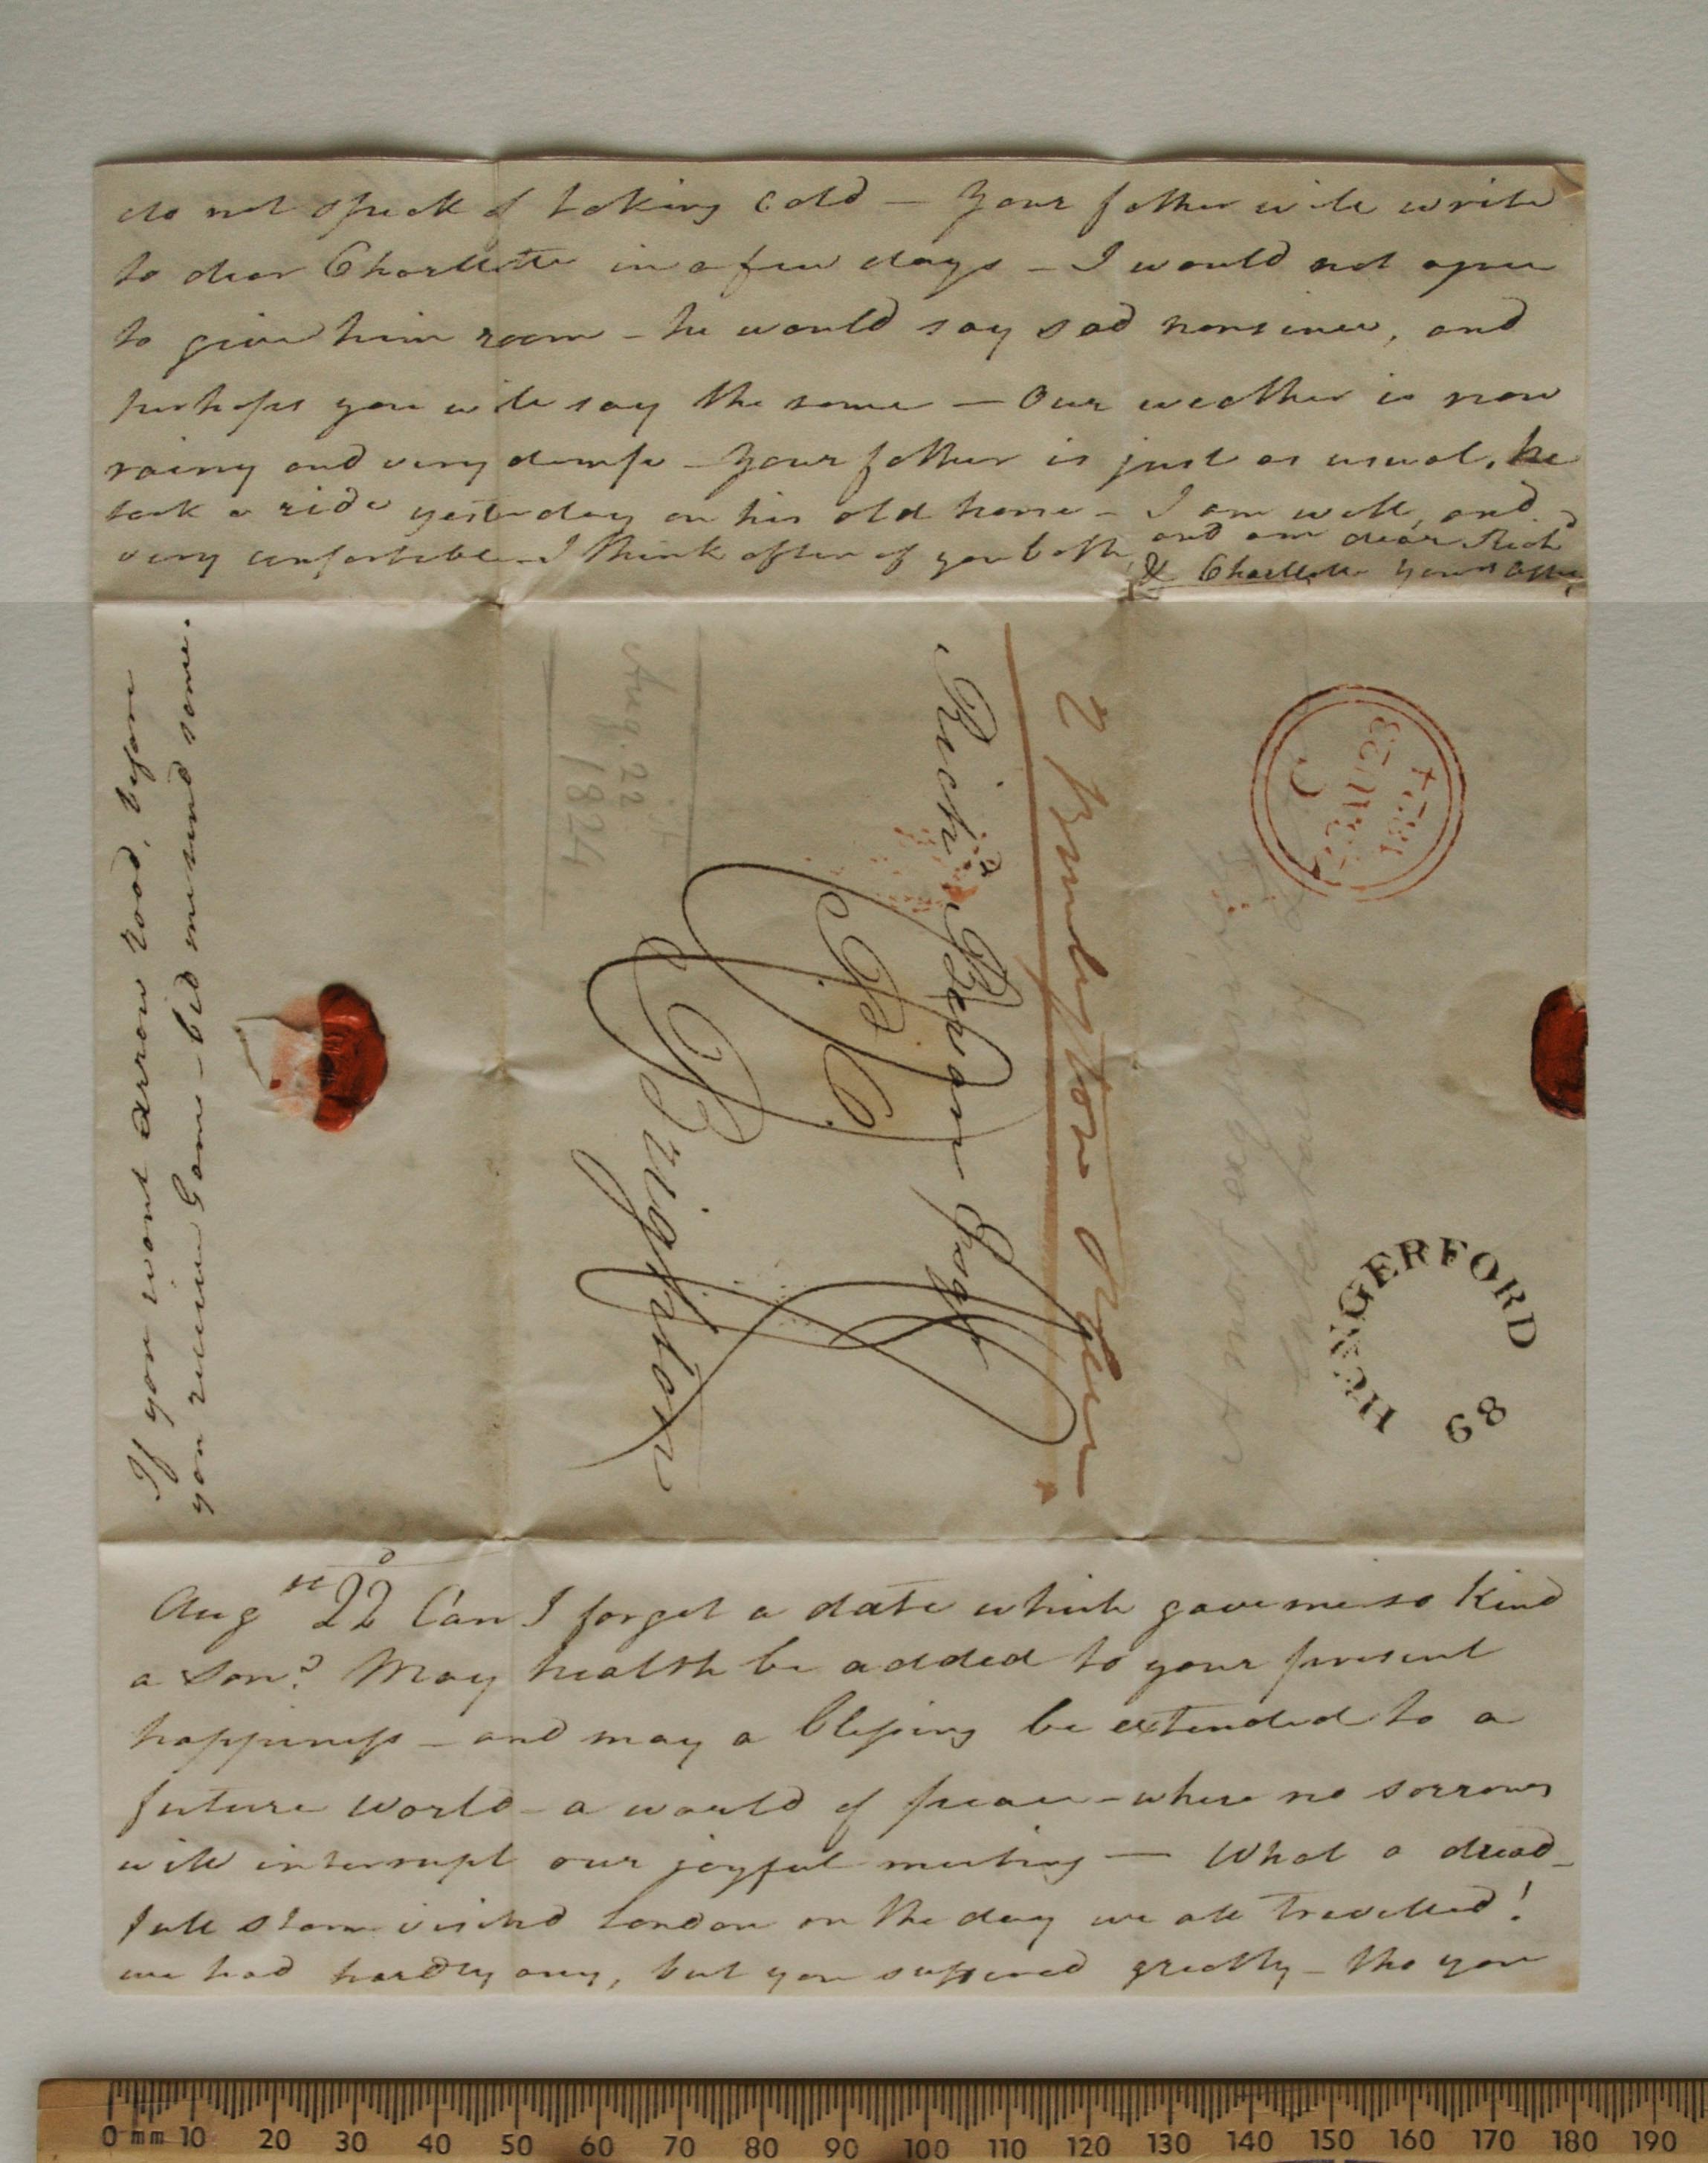 do not speak of taking cold — Your father will write
to dear Charlotte in a few days — I would not agree
to give him room — he would say sad nonsence, and
perhaps you will say the same — Our weather is now
rainy and very damp — Your father is just as usual, he
took a ride yesterday on his old horse — I am well, and
very comfortable — I think often of you both,
and am dear Rich
& Charlotte Yours Affec
If you want arrow root, before
you receive Game — bid me send some.
Aug. 22
1824
2 Burlington
Richd Bevan Esqr
P: O:
Brighton
C
23 AU 23
1824
HUNGERFORD
68
Augst 22d Can I forget a date which gave me so kind
a Son? May health be added to your present
happiness — and may a blessing be extended to a
future world — a world of peace — where no sorrows
will interrupt our joyful meeting — What a dread_
full storm visited London on the day we all travelled!
we had hardly any, but you suffered greatly — tho you
0 mm 10 20 30 40 50 60 70 80 90 100 110 120 130 140 150 160 170 180 190